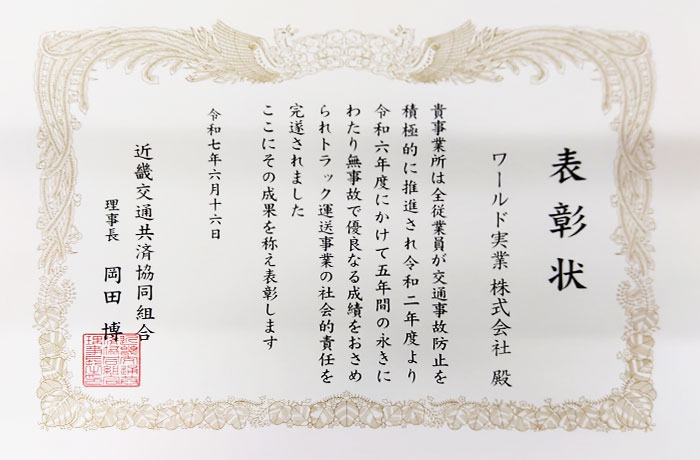 表彰状
ワールド実業株式会社 殿
貴事業所は全従業員が交通事故防止を
積極的に推進され令和二年度より
令和六年度にかけて五年間の永きに
わたり無事故で優良なる成績をおさめ
られトラック運送事業の社会的責任を
完遂されました
ここにその成果を称え表彰します
令和七年六月十六日
近畿交通共済協同組合
理事長 岡田 博